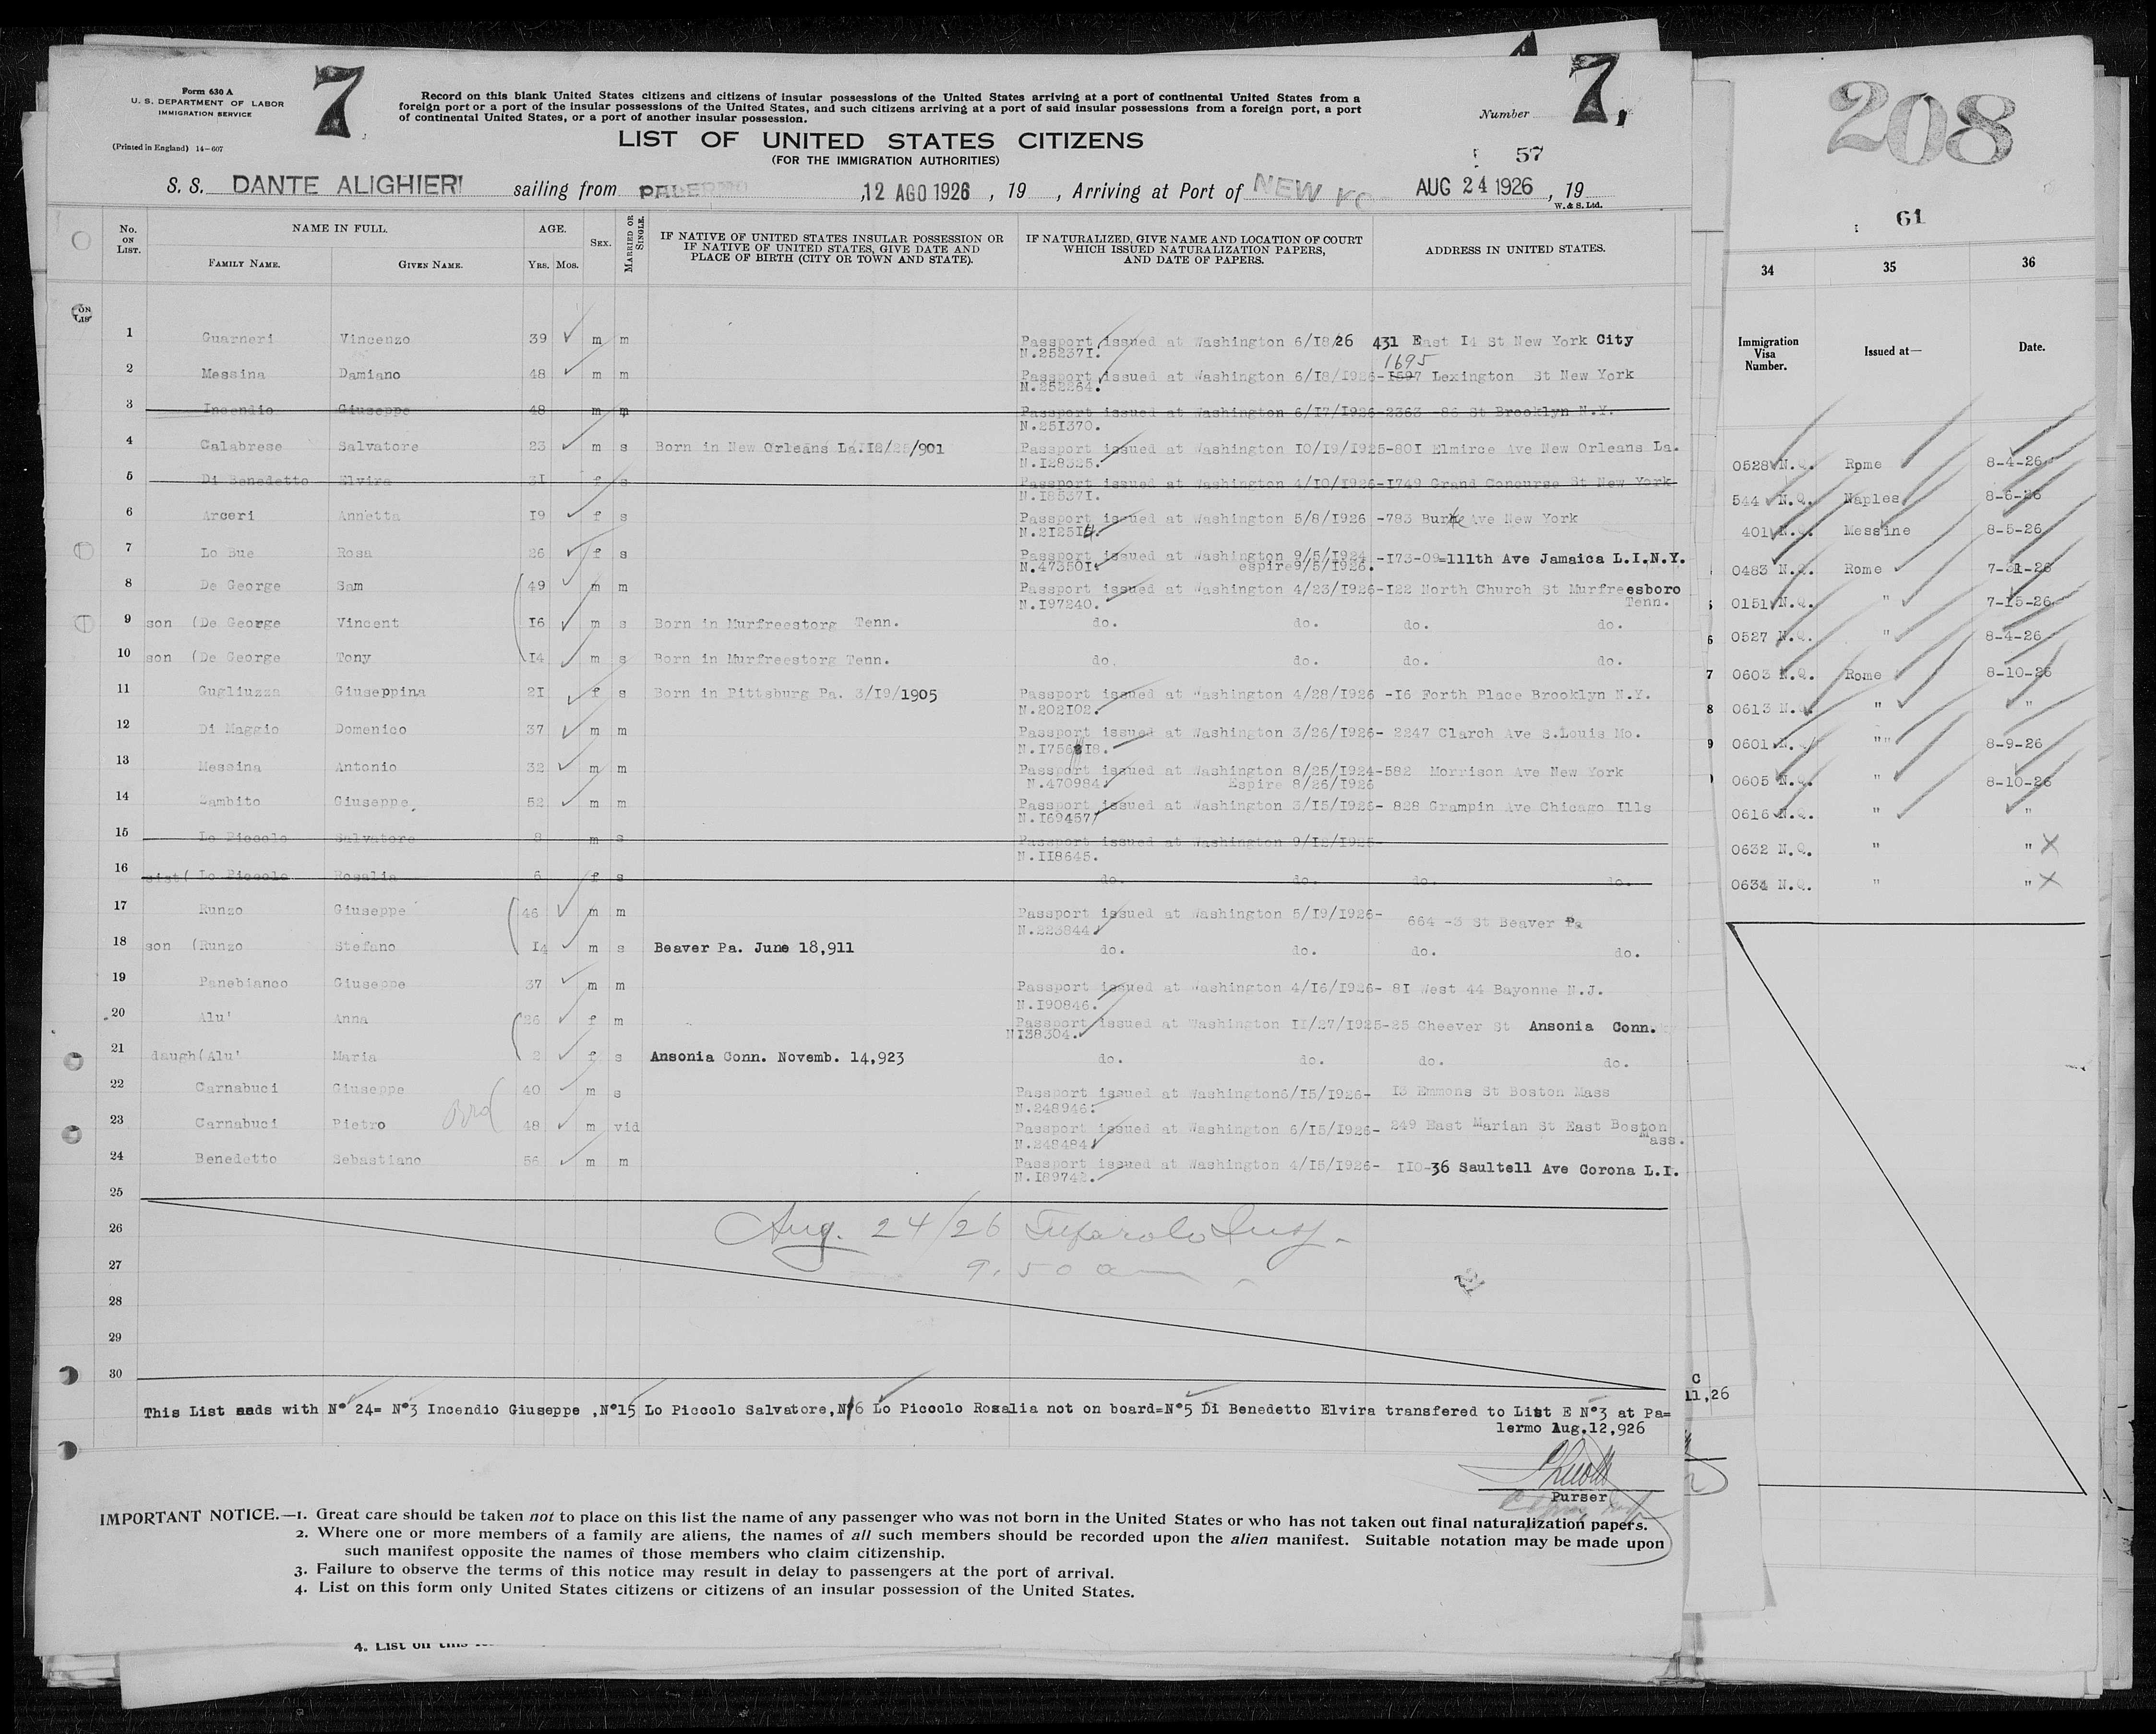 7
7,
208
Form 630 A
U. S. DEPARTMENT OF LABOR
IMMIGRATION SERVICE
(Printed in England) 14-607
Record on this blank United States citizens and citizens of insular possessions of the United States arriving at a port of continental United States from a
foreign port or a port of the insular possessions of the United States, and such citizens arriving at a port of said insular possessions from a foreign port, a port
of continental United States, or a port of another insular possession.
Number
LIST OF UNITED STATES CITIZENS
(FOR THE IMMIGRATION AUTHORITIES)
57
S. S. DANTE ALIGHIERI sailing from PALERMO ,12 AGO 1926 , 19 , Arriving at Port of NEW AUG 24 1926 , 19
W. & S. Ltd.
61
No. ON LIST.
NAME IN FULL.
FAMILY NAME. GIVEN NAME.
AGE.
YRS. MOS.
SEX.
MARRIED OR SINGLE.
IF NATIVE OF UNITED STATES INSULAR POSSESSION OR
IF NATIVE OF UNITED STATES, GIVE DATE AND
PLACE OF BIRTH (CITY OR TOWN AND STATE).
IF NATURALIZED, GIVE NAME AND LOCATION OF COURT
WHICH ISSUED NATURALIZATION PAPERS,
AND DATE OF PAPERS.
ADDRESS IN UNITED STATES.
1 Guarneri Vincenzo 39 m m Passport issued at Washington 6/18/26 431 East I4 St New York City
N.252371.
1695
2 Messina Damiano 48 m m Passport issued at Washington 6/18/1926-1597 Lexington St New York
N.252264.
3 Incendio Giuseppe 48 m m Passport issued at Washington 6/17/1926-2363 -86 St Brooklyn N.Y.
N.251370.
4 Calabrese Salvatore 23 m s Born in New Orleans La.I2/25/901 Passport issued at Washington 10/19/1925-801 Elmirce Ave New Orleans La.
N.128325.
5 Di Benedetto Elvira 31 f s Passport issued at Washington 4/10/1926-1749 Grand Concourse St New York
N.185371.
6 Arceri Annetta 19 f s Passport issued at Washington 5/8/1926 -783 Burke Ave New York
N.212514.
7 Lo Bue Rosa 26 f s Passport issued at Washington 9/5/1924 -173-09=111th Ave Jamaica L.I.N.Y.
N.473501. espire 9/5/1926.
8 De George Sam 49 m m Passport issued at Washington 4/23/1926-122 North Church St Murfreesboro
N.197240. Tenn.
9 son (De George Vincent 16 m s Born in Murfreestorg Tenn. do. do. do. do.
10 son (De George Tony 14 m s Born in Murfreestorg Tenn. do. do. do. do.
11 Gugliuzza Giuseppina 21 f s Born in Pittsburg Pa. 3/19/1905 Passport issued at Washington 4/28/1926 -16 Forth Place Brooklyn N.Y.
N.202102.
12 Di Maggio Domenico 37 m m Passport issued at Washington 3/26/1926- 2247 Clarch Ave S.Louis Mo.
13 Messina Antonio 32 m m Passport issued at Washington 8/25/1924-582 Morrison Ave New York
N.470984. Espire 8/26/1926
14 Zambito Giuseppe 52 m m Passport issued at Washington 3/15/1926- 828 Grampin Ave Chicago Ills
N.169457
15 Lo Piccolo Salvatore 8 m s Passport issued at Washington 9/12/1925-
N.118645.
16 sist( Lo Piccolo Rosalia 6 f s do. do. do. do.
17 Runzo Giuseppe 46 m m Passport issued at Washington 5/19/1926- 664 -3 St Beaver Pa
N.223844
18 son (Runzo Stefano 14 m s Beaver Pa. June 18,911 do. do. do. do.
19 Panebianco Giuseppe 37 m m Passport issued at Washington 4/16/1926- 81 West 44 Bayonne N.J.
N.190846.
20 Alu' Anna 26 f m Passport issued at Washington 11/27/1925-25 Cheever St Ansonia Conn.
N138304.
21 daugh(Alu' Maria 2 f s Ansonia Conn. Novemb. 14,923 do. do. do. do.
22 Carnabuci Giuseppe 40 m s Passport issued at Washington6/15/1926- 13 Emmons St Boston Mass
N.248946.
Bro(
23 Carnabuci Pietro 48 m vid Passport issued at Washington 6/15/1926- 249 East Marian St East Boston
N.248484 Mass.
24 Benedetto Sebastiano 56 m m Passport issued at Washington 4/15/1926- 110-36 Saultell Ave Corona L.I.
N.189742.
25
26
Aug. 24/26
27
9.50 am
28
29
30
This List ends with N° 24= N°3 Incendio Giuseppe ,N°15 Lo Piccolo Salvatore,N°16 Lo Piccolo Rosalia not on board=N°5 Di Benedetto Elvira transfered to List E N°3 at Pa=
lermo Aug.12,926
Purser
IMPORTANT NOTICE.—1. Great care should be taken not to place on this list the name of any passenger who was not born in the United States or who has not taken out final naturalization papers.
2. Where one or more members of a family are aliens, the names of all such members should be recorded upon the alien manifest. Suitable notation may be made upon
such manifest opposite the names of those members who claim citizenship.
3. Failure to observe the terms of this notice may result in delay to passengers at the port of arrival.
4. List on this form only United States citizens or citizens of an insular possession of the United States.
34 35 36
Immigration Visa Number. Issued at— Date.
0528 N.Q. Rome 8-4-26
544 N.Q. Naples 8-6-26
401 N.Q. Messine 8-5-26
0483 N.Q. Rome 7-31-26
0151 N.Q. " 7-15-26
6 0527 N.Q. " 8-4-26
7 0603 N.Q. Rome 8-10-26
8 0613 N.Q. " "
9 0601 N.Q. "" 8-9-26
0605 N.Q. " 8-10-26
0616 N.Q. " "
0632 N.Q. " " X
0634 N.Q. " " X
C
11,26